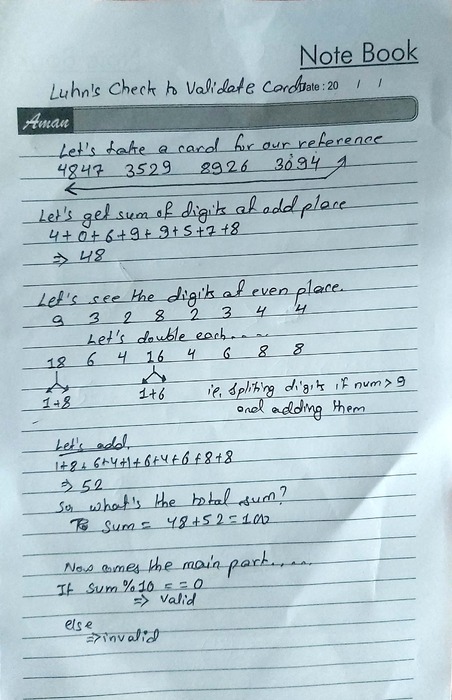 Note Book
Luhn's Check to Validate Card
Date : 20 / /
Aman
Let's take a card for our reference
4847 3529 8926 3094
Let's get sum of digits at odd place
4+0+6+9+9+5+7+8
⇒ 48
Let's see the digits at even place.
9 3 2 8 2 3 4 4
Let's double each.....
18 6 4 16 4 6 8 8
1+8 1+6 i.e, spliting digits if num > 9
and adding them
Let's add
1+8+6+4+1+6+4+6+8+8
⇒ 52
So what's the total sum?
Sum = 48+52=100
Now comes the main part......
If Sum%10 == 0
⇒ valid
else
⇒ invalid